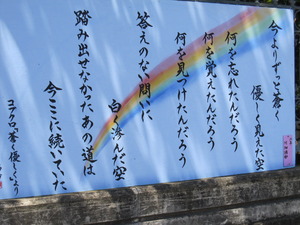 今よりずっと蒼く
優しく見えた空
何を忘れんだろう
何を覚えたんだろう
何を見つけたんだろう
答えのない問いに
白く滲んだ空
踏み出せなかった あの道は
今ここに続いていた
コアクロ「蒼く優しく」より